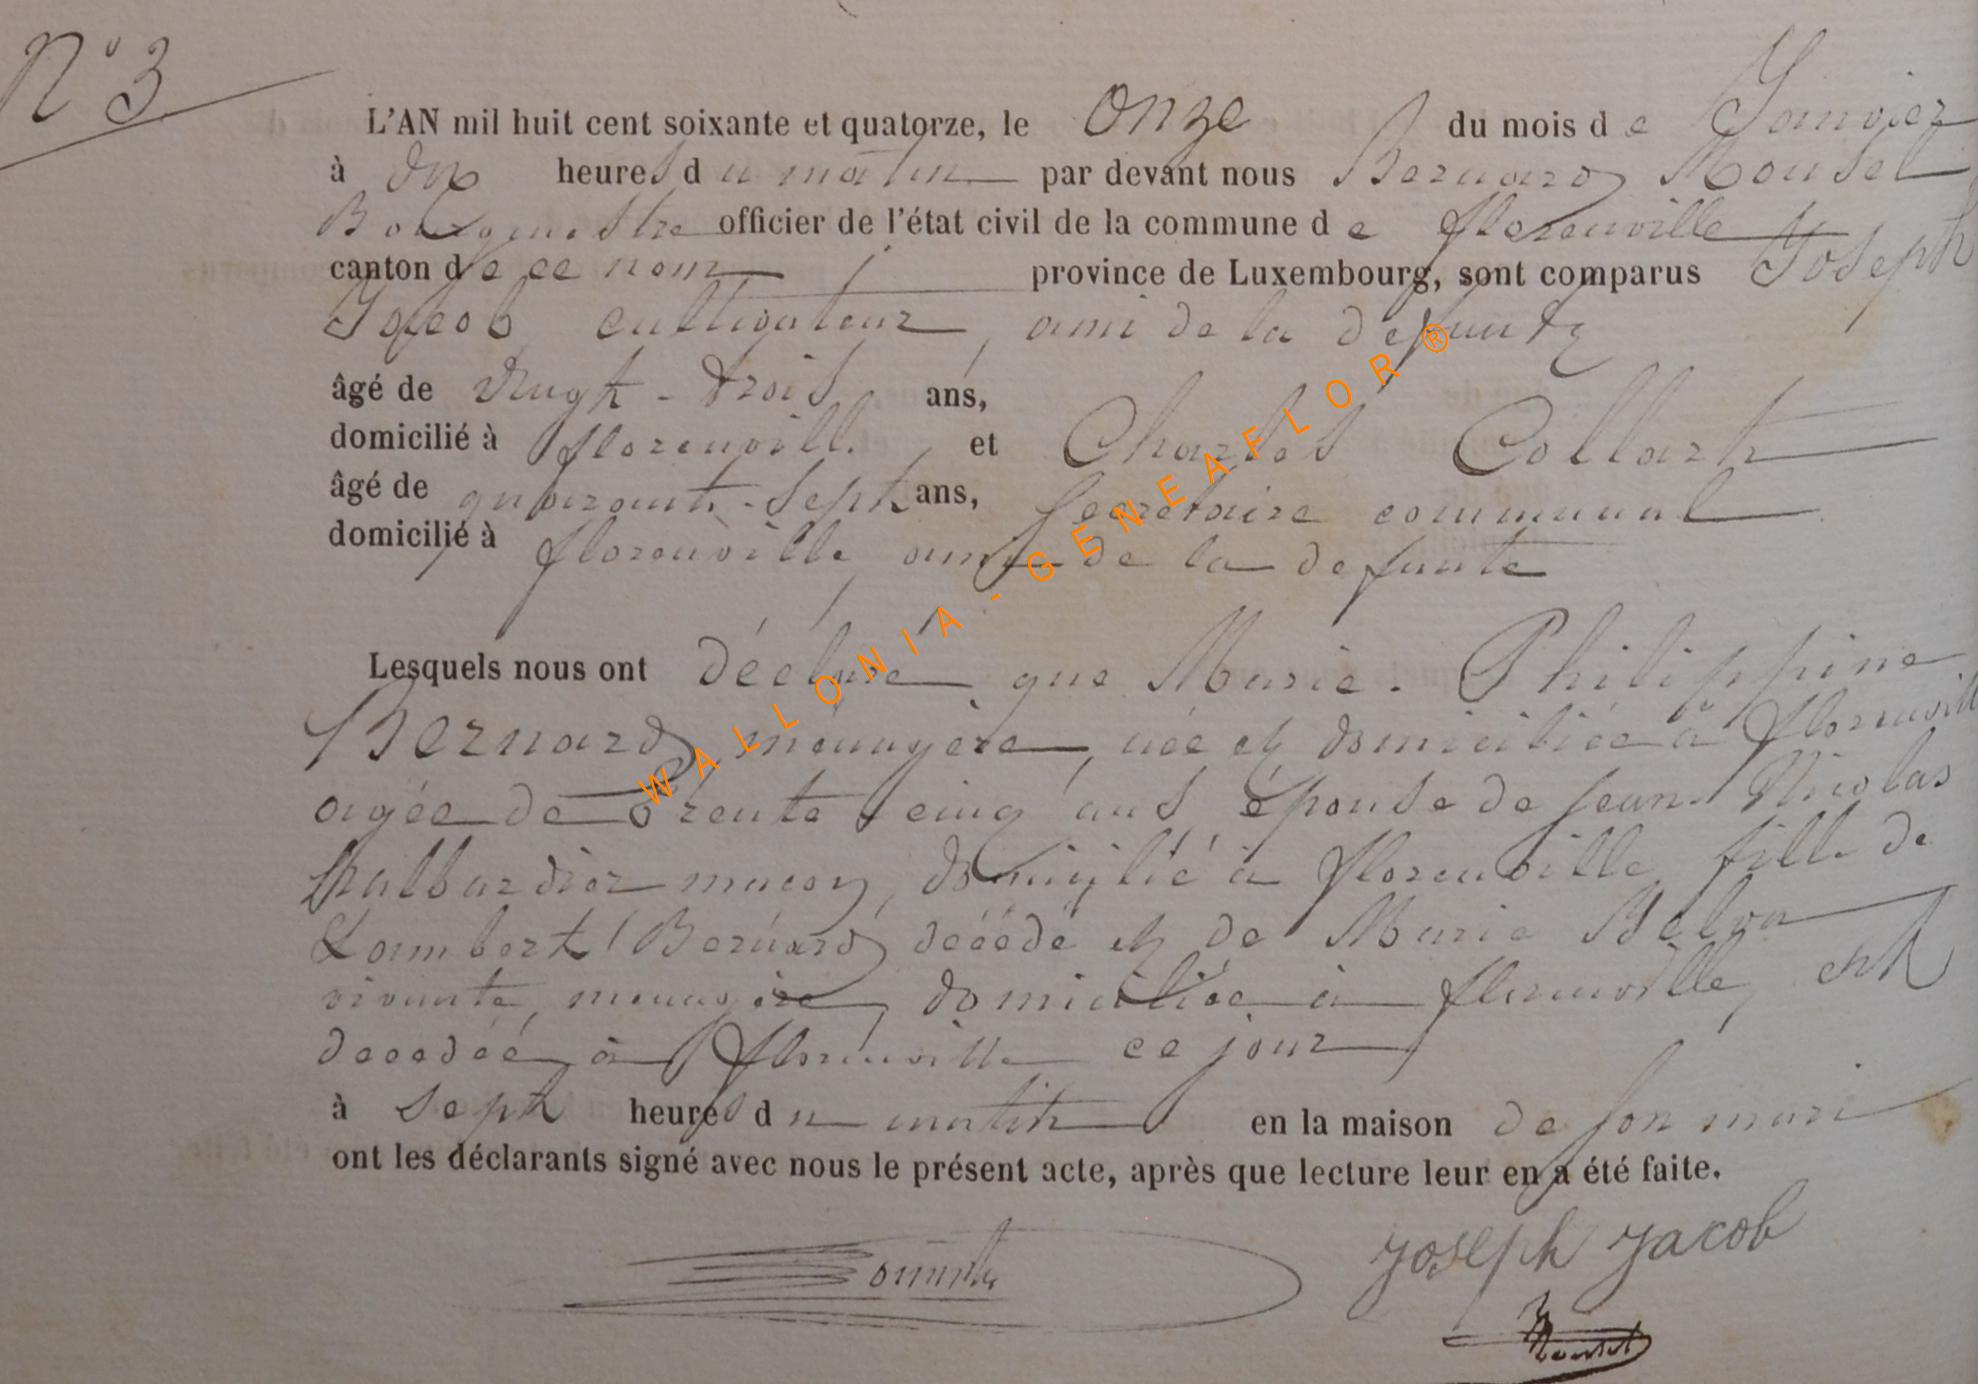 N° 3
L'AN mil huit cent soixante et quatorze, le onze du mois de Janvier
à dix heures du matin par devant nous Bernard Mousel
Bourgmestre officier de l'état civil de la commune de florenville
canton de ce nom province de Luxembourg, sont comparus Joseph
Jacob, cultivateur, ami de la defunte
âgé de vingt-trois ans,
domicilié à florenville, et Charles Collart
âgé de quarante-sept ans, Secretaire communal
domicilié à florenville, ami de la defunte
Lesquels nous ont déclaré que Marie-Philippine
Bernard, ménagère, née et domiciliée à florenville
agée de trente cinq ans, épouse de Jean Nicolas
halbardier maçon, domicilié à florenville, fille de
Lambert Bernard décédé et de Marie
vivante, menagère, domiciliée à florenville, est
decedée à florenville ce jour
à sept heures du matin en la maison de son mari
ont les déclarants signé avec nous le présent acte, après que lecture leur en a été faite.
Joseph Jacob
Mousel
WALLONIA-GENEAFLOR®